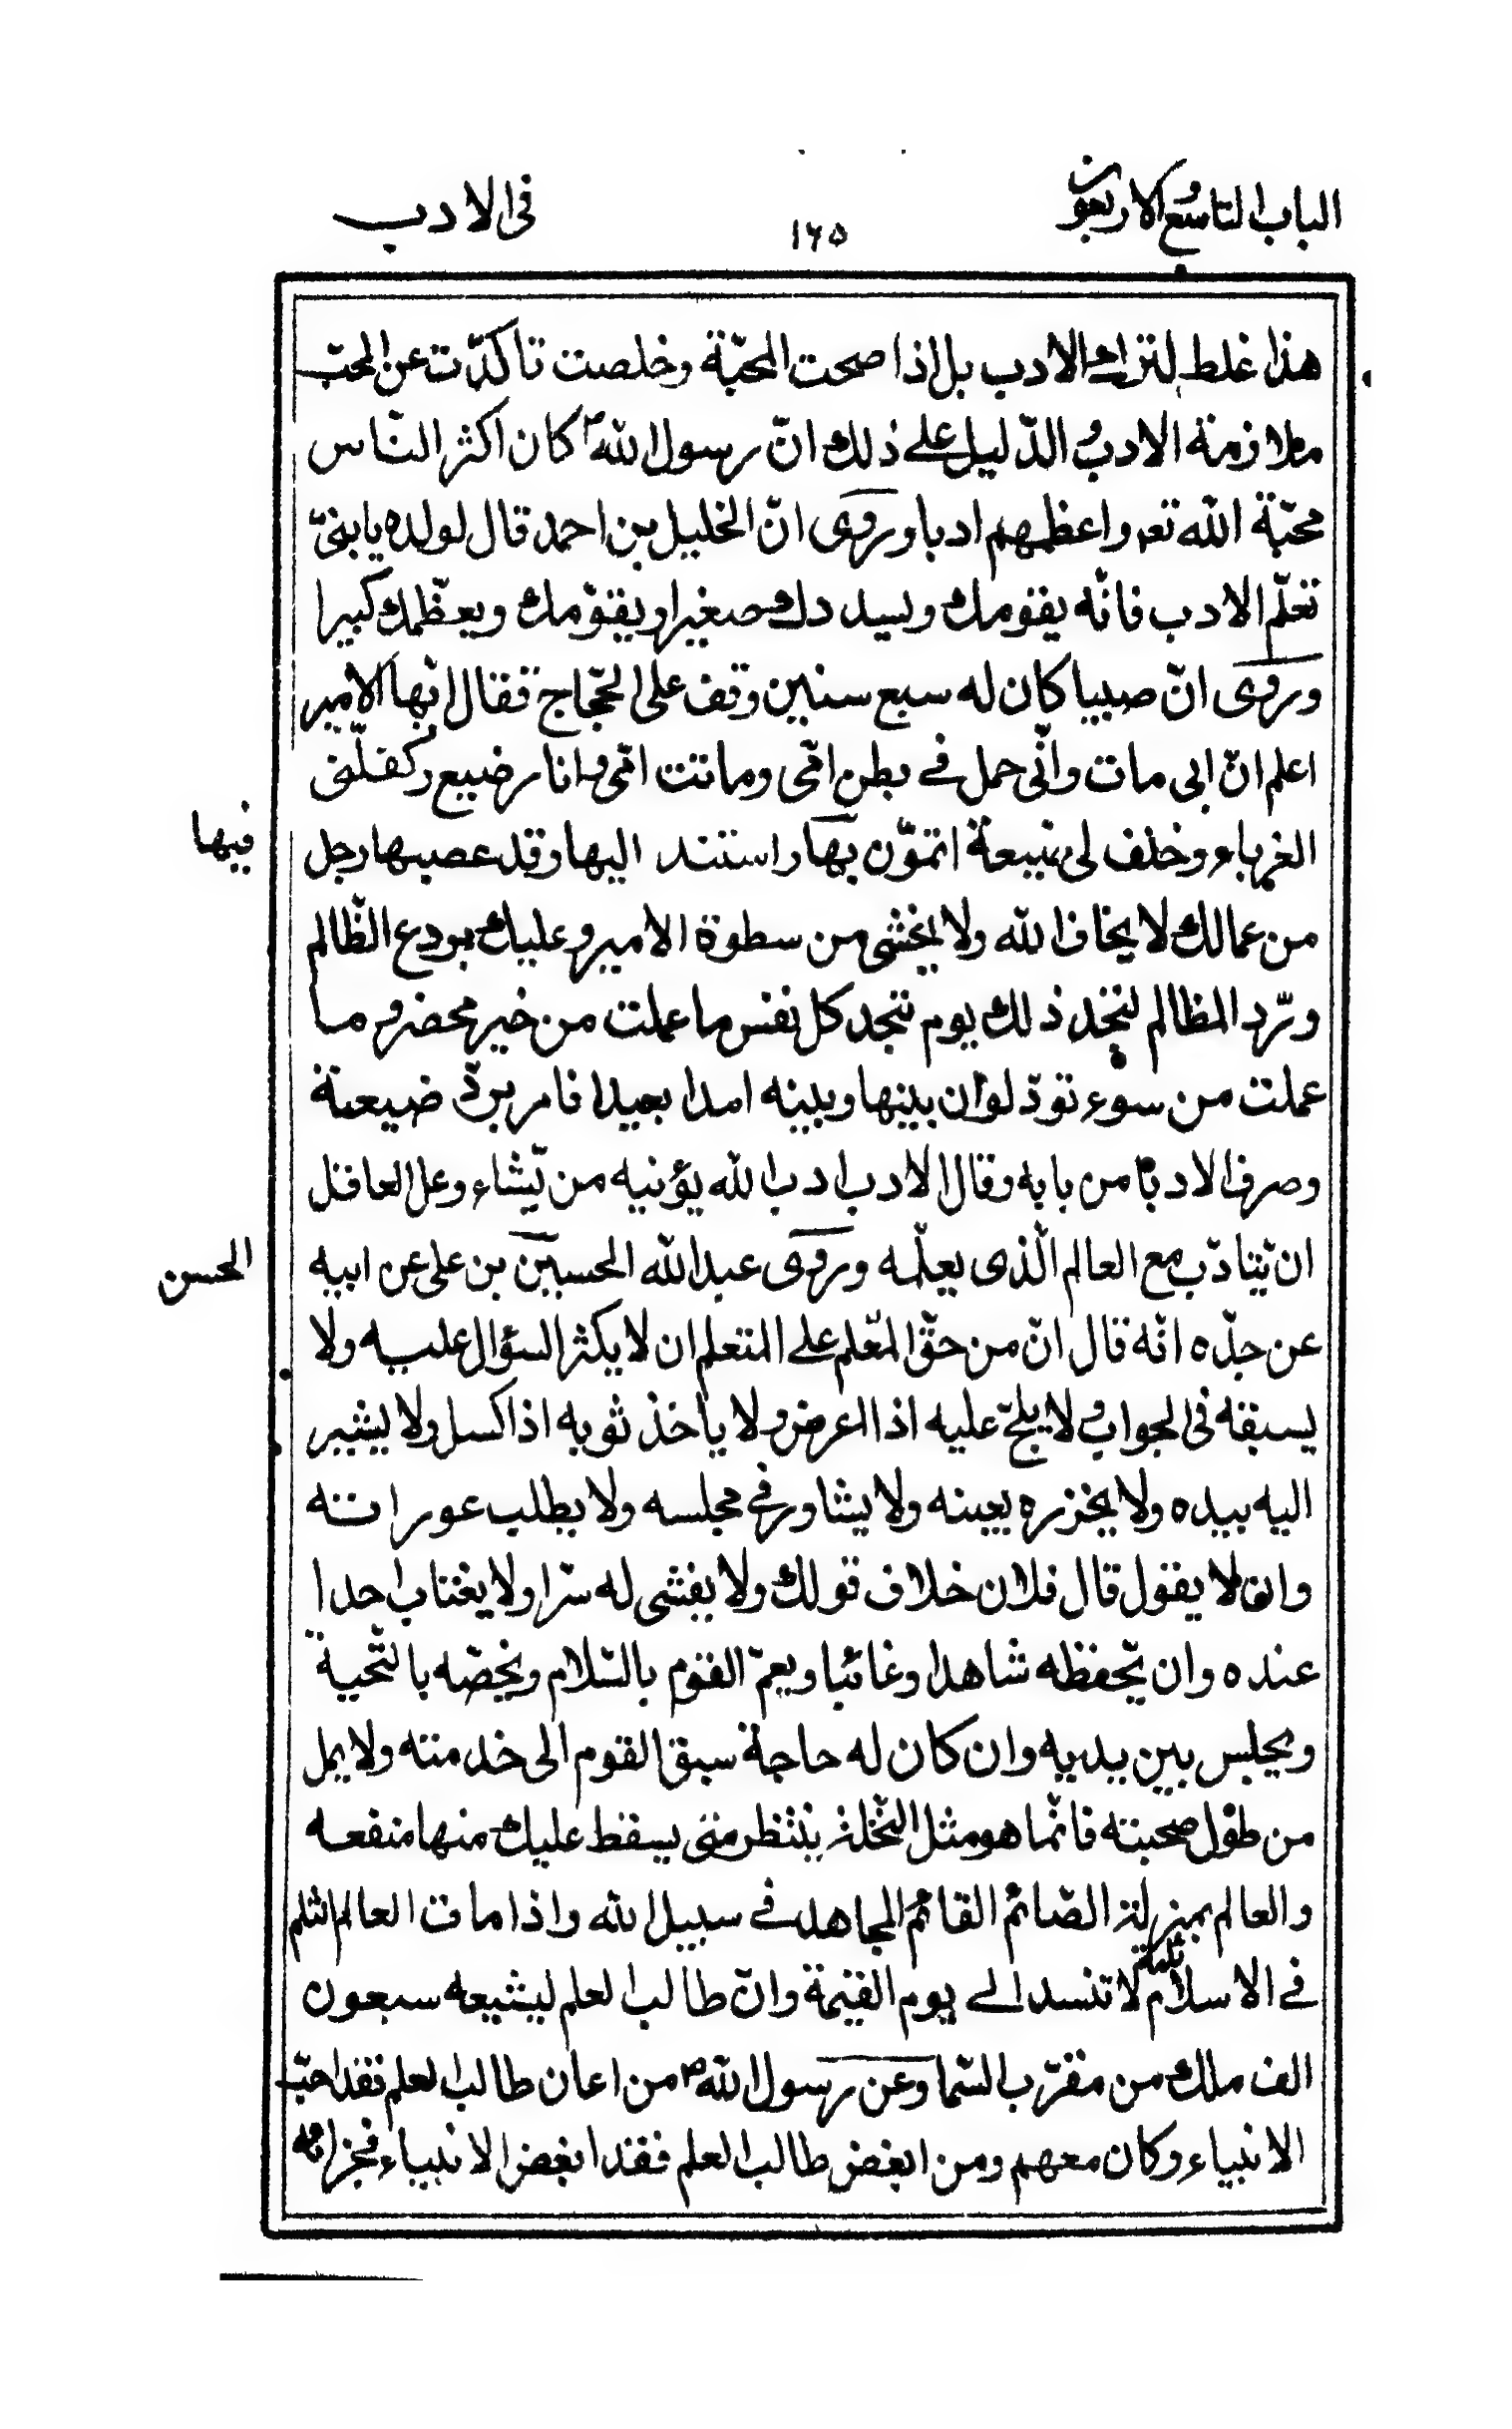 الباب التاسع الاربعون
١٦٥
فى الادب
هذا غلط لترك الادب بل اذا صحت المحبّة وخلصت تاكدّت عن المحبّ
ملازمة الادب و الدّليل على ذلك انّ رسول الله ص كان اكثر النّاس
محبّة الله تعـ واعظمهم ادبا وروى انّ الخليل بن احمد قال لولده يا بنىّ
تعلّم الادب فانّه يقومك ويسددك صغيرا ويقوّمك ويعظّمك كبيرا
وروى انّ صبيا كان له سبع سنين وقف على الحجّاج فقال ايّها الامير
اعلم انّ ابى مات وانّى حمل فى بطن امّى وماتت امّى و انا رضيع وكفلّنى
الغرباء وخلف لى ضيعة اتموّن بها واستند اليها وقد غصبها رجل
فيها
من عمالك لا يخاف الله ولا يخشى من سطوة الامير و عليك بردع الظّالم
وردّ المظالم لتجد ذلك يوم تجد كل نفس ما عملت من خير محضر و ما
عملت من سوء تودّ لو ان بينها وبينه امدا بعيدا فامر بردّ ضيعته
وصرف الادبا من بابه وقال الادب ادب الله يؤتيه من يّشاء وعلى العاقل
ان يّتادّب مع العالم الّذى يعلّمه وروى عبدالله الحسين بن على عن ابيه
الحسن
عن جدّه انّه قال انّ من حقّ المعّلم على المتعلم ان لا يكثر السؤال عليه ولا
يسبقه فى الجواب و لا يلحّ عليه اذا اعرض و لا ياخذ ثوبه اذا كسل ولا يشير
اليه بيده ولا يخزره بعينه ولا يشاور فى مجلسه ولا يطلب عوراته
وان لا يقول قال فلان خلاف قولك ولا يفشى له سّرا ولا يغتاب احدا
عنده وان يّحفظه شاهدا وغائبا ويعمّ القوم بالسّلام ويخصّه بالتّحية
ويجلس بين يديه وان كان له حاجة سبق القوم الى خدمته ولا يمل
من طول صحبته فانّما هو مثل النّخلة ينتظر متى يسقط عليك منها منفعه
والعالم بمنزلة الصّائم القائم المجاهد فى سبيل الله واذا مات العالم انثلم
فى الاسلام ثلمة لا تنسد الى يوم القيمة وانّ طالب العلم ليشيعه سبعون
الف ملك من مقرّب السّما وعن رسول الله ص من اعان طالب العلم فقد احبّ
الانبياء وكان معهم ومن ابغض طالب العلم فقد ابغض الانبياء فجزاؤه